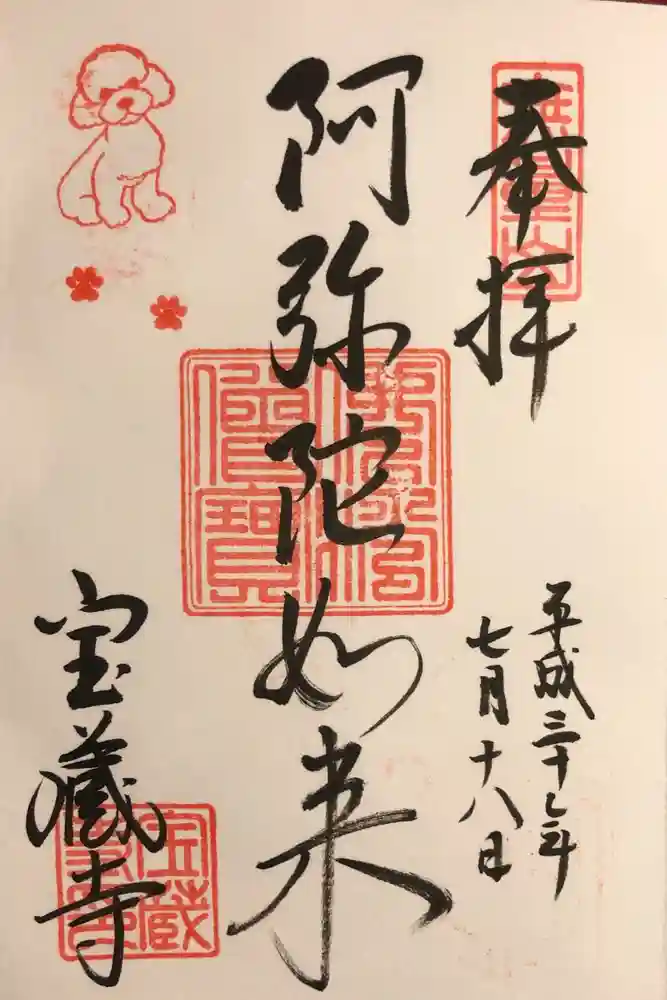 奉拝
平成三十年
七月十八日
阿弥陀如来
佛法僧寶
宝蔵寺